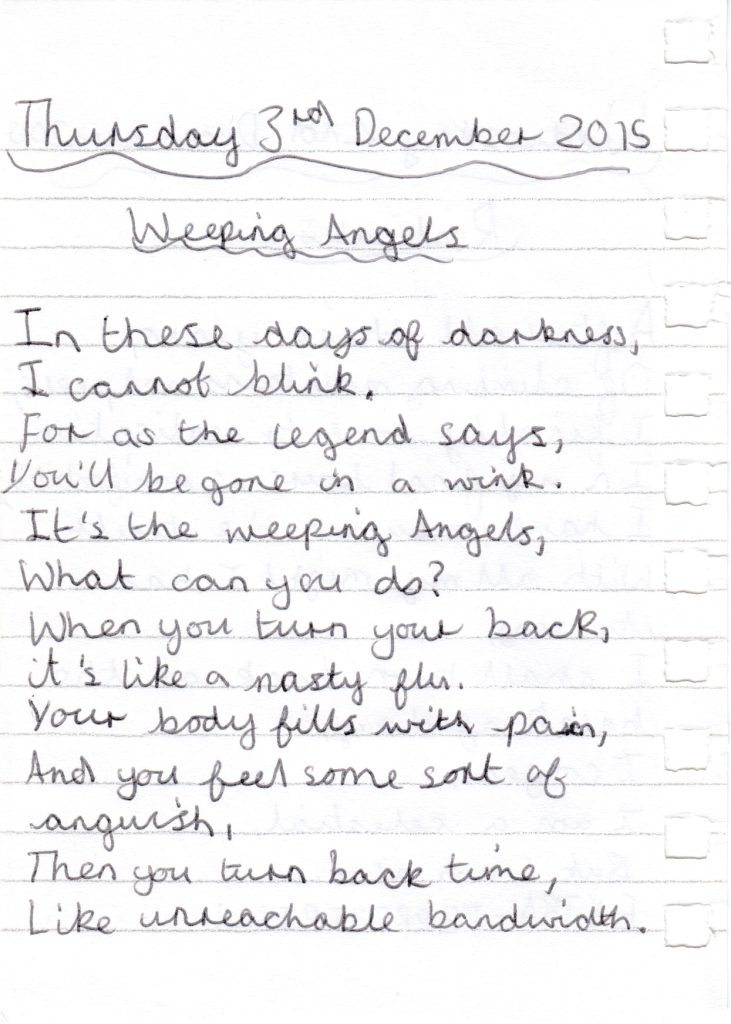 Thursday 3rd December 2015
Weeping Angels
In these days of darkness,
I cannot blink.
For as the legend says,
You'll be gone in a wink.
It's the weeping Angels,
What can you do?
When you turn your back,
it's like a nasty flu.
Your body fills with pain,
And you feel some sort of
anguish,
Then you turn back time,
Like unreachable bandwidth.